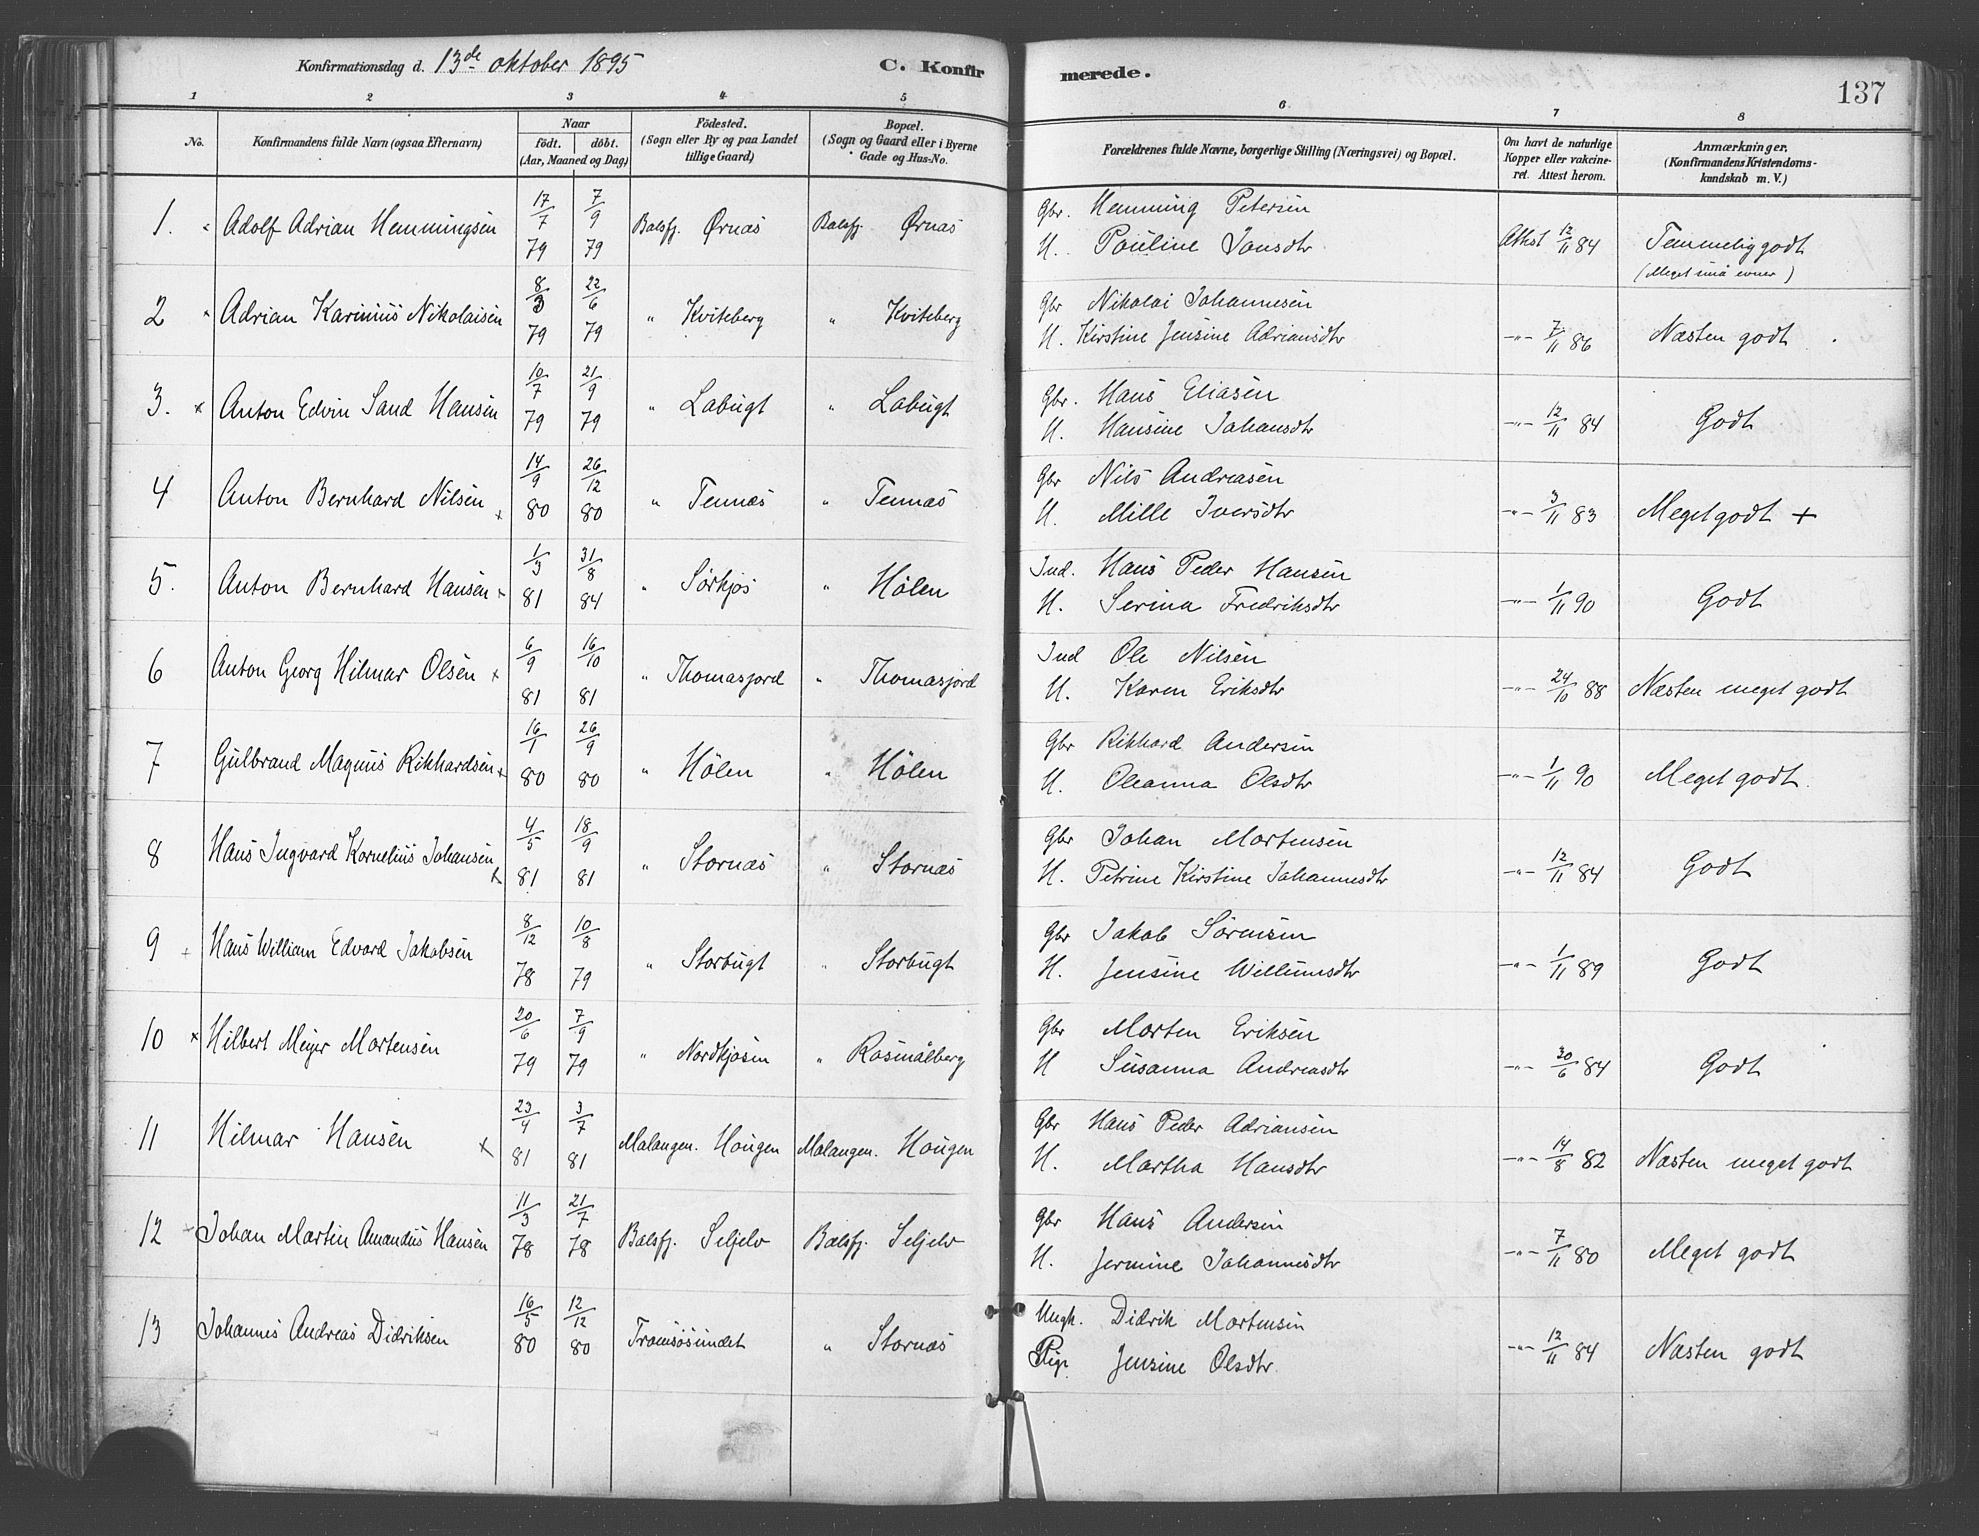 Konfirmationsdag d. 13de oktober 1895 C. Konfirmerede. 137
1 2 3 4 5 6 7 8
No. Konfirmandens fulde Navn (ogsaa Efternavn) Naar født. døbt. (Aar, Maaned og Dag) Fødested. (Sogn eller By og paa Landet tillige Gaard) Bopæl. (Sogn og Gaard eller i Byerne Gade og Hus-No. Forældrenes fulde Navne, borgerlige Stilling (Næringsvei) og Bopæl. Om havt de naturlige Kopper eller vakcineret. Attest herom. Anmærkninger. (Konfirmandens Kristendomskundskab m. V.)
1. Adolf Adrian Hemmingsen 17/7 79 7/9 79 Balsfj. Ørnæs Balsfj. Ørnæs Gbr. Hemming Petersen
H. Pauline Jonsdtr Attest 12/11 84 Temmelig godt
(Meget små evner)
2 Adrian Karinius Nikolaisen 8/3 79 22/6 79 " Kviteberg " Kviteberg Gbr Nikolai Johannesen
H. Kirstine Jensine Adriansdtr -"- 7/11 86 Næsten godt
3. x Anton Edvin Sand Hansen 10/7 79 21/9 79 " Labugt " Labugt Gbr. Hans Eliasen
H. Hansine Johansdtr -"- 12/11 84 Godt
4 Anton Bernhard Nilsen x 14/9 80 26/12 80 " Tennæs " Tennæs Gbr Nils Andreasen
H. Mille Iversdtr -"- 3/11 83 Meget godt +
5. Anton Bernhard Hansen x 1/3 81 31/8 84 " Sørkjos " Hølen Ind. Hans Peder Hansen
H. Serina Fredriksdtr -"- 1/11 90 Godt
6 Anton Georg Hilmar Olsen x 6/9 81 16/10 81 " Thomasjord " Thomasjord Ind Ole Nilsen
H. Karen Eriksdtr -"- 24/10 88 Næsten meget godt
7 Gulbrand Magnus Rikhardsen x 16/1 80 26/9 80 " Hølen " Hølen Gbr Rikhard Andersen
H. Oleanna Olsdtr -"- 1/11 90 Meget godt.
8 Hans Ingvard Kornelius Johansen x 4/5 81 18/9 81 " Stornæs " Stornæs Gbr Johan Mortensen
H. Petrine Kirstine Johannesdtr -"- 12/11 84 Godt
9 + Hans William Edvard Jakobsen 8/12 78 10/8 79 " Storbugt " Storbugt Gbr Jakob Sørensen
H. Jensine Willumsdtr -"- 1/11 89 Godt
10 x Hilbert Meyer Mortensen 20/6 79 7/9 79 " Nordkjosen " Rosmålberg Gbr Morten Eriksen
H Susanna Andreasdtr -"- 30/6 84 Godt
11 Hilmar Hansen x 23/4 81 3/7 81 Malangen. Hougen Malangen. Hougen Gbr Hans Peder Adriansen
H. Martha Hansdtr -"- 14/8 82 Næsten meget godt
12 Johan Martin Amandus Hansen 11/3 78 21/7 78 Balsfj. Seljelv Balsfj. Seljelv Gbr Hans Andersen
H. Jermine Johannesdtr -"- 7/11 80 Meget godt
13 Johannes Andreas Didriksen 16/5 80 12/12 80 Tromsøsundet " Stornæs Ungk. Didrik Mortensen
Pige Jensine Olsdtr. -"- 12/11 84 Næsten godt